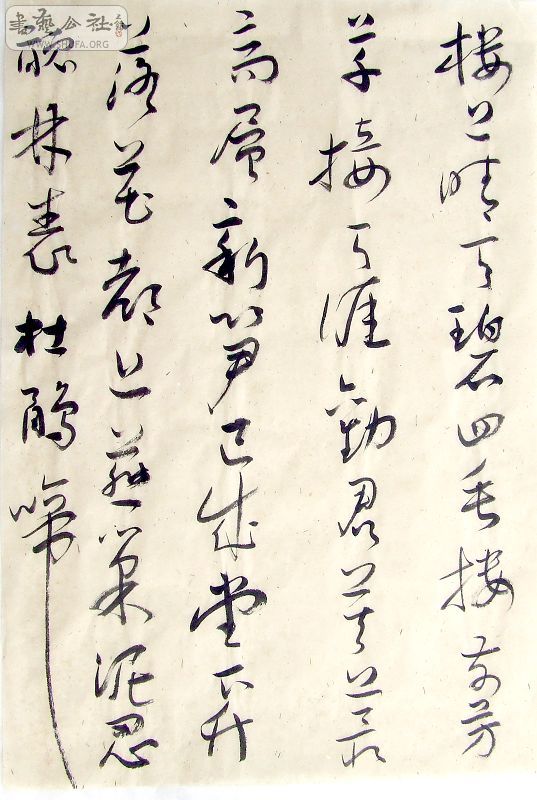 書藝公社
WWW.SHUFA.ORG
樓上晴天碧四垂樓前芳
草接天涯勸君莫上最
高層新笋已成堂下竹
落花都上燕巢泥忍
聽林表杜鵑啼